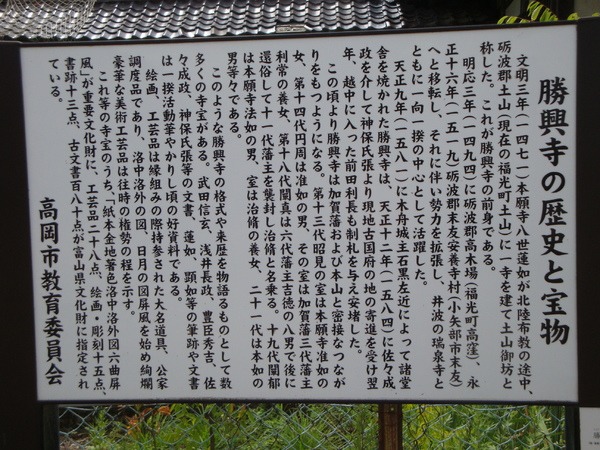 勝興寺の歴史と宝物
文明三年(一四七一)本願寺八世蓮如が北陸布教の途中、
砺波郡土山(現在の福光町土山)に一寺を建て土山御坊と
称した。これが勝興寺の前身である。
明応三年(一四九四)に砺波郡高木場(福光町高窪)、永
正十六年(一五一九)砺波郡末友安養寺村(小矢部市末友)
へと移転し、それに伴い勢力を拡張し、井波の瑞泉寺と
ともに一向一揆の中心として活躍した。
天正九年(一五八一)に木舟城主石黒左近によって諸堂
舎を焼かれた勝興寺は、天正十二年(一五八四)に佐々成
政を介して神保氏張より現地古国府の地の寄進を受け翌
年、越中に入った前田利長も制札を与え安堵した。
この頃より勝興寺は加賀藩および本山と密接なつなが
りをもつようになる。第十三代昭見の室は本願寺准如の
女、第十四代円周は准如の男、その室は加賀藩三代藩主
利常の養女、第十八代闡真は六代藩主吉徳の八男で後に
還俗して十一代藩主を襲封し治脩と名乗る。十九代闡郁
は本願寺法如の男、室は治脩の養女、二十一代は本如の
男等々である。
このような勝興寺の格式や来歴を物語るものとして数
多くの寺宝がある。武田信玄、浅井長政、豊臣秀吉、佐
々成政、神保氏張等の文書、蓮如、顕如等の筆跡や文書
は一揆活動華やかりし頃の好資料である。
絵画、工芸品は縁組みの際持参された大名道具、公家
調度品であり、洛中洛外の図、日月の図屏風を始め絢爛
豪華な美術工芸品は往時の権勢の程を示す。
これ等の寺宝のうち、「紙本金地著色洛中洛外図六曲屏
風」が重要文化財に、工芸品二十八点、絵画・彫刻十五点、
書跡十三点、古文書百八十点が富山県文化財に指定され
ている。
高岡市教育委員会